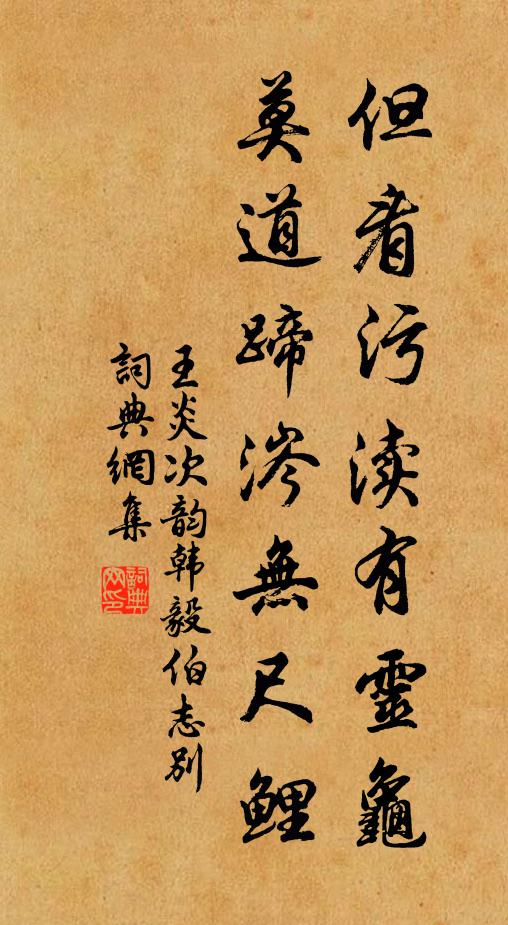 但看污渎有靈龜
莫道蹄涔無尺鯉
王炎次韵韩毅伯志别
詞典網集
詞典網印